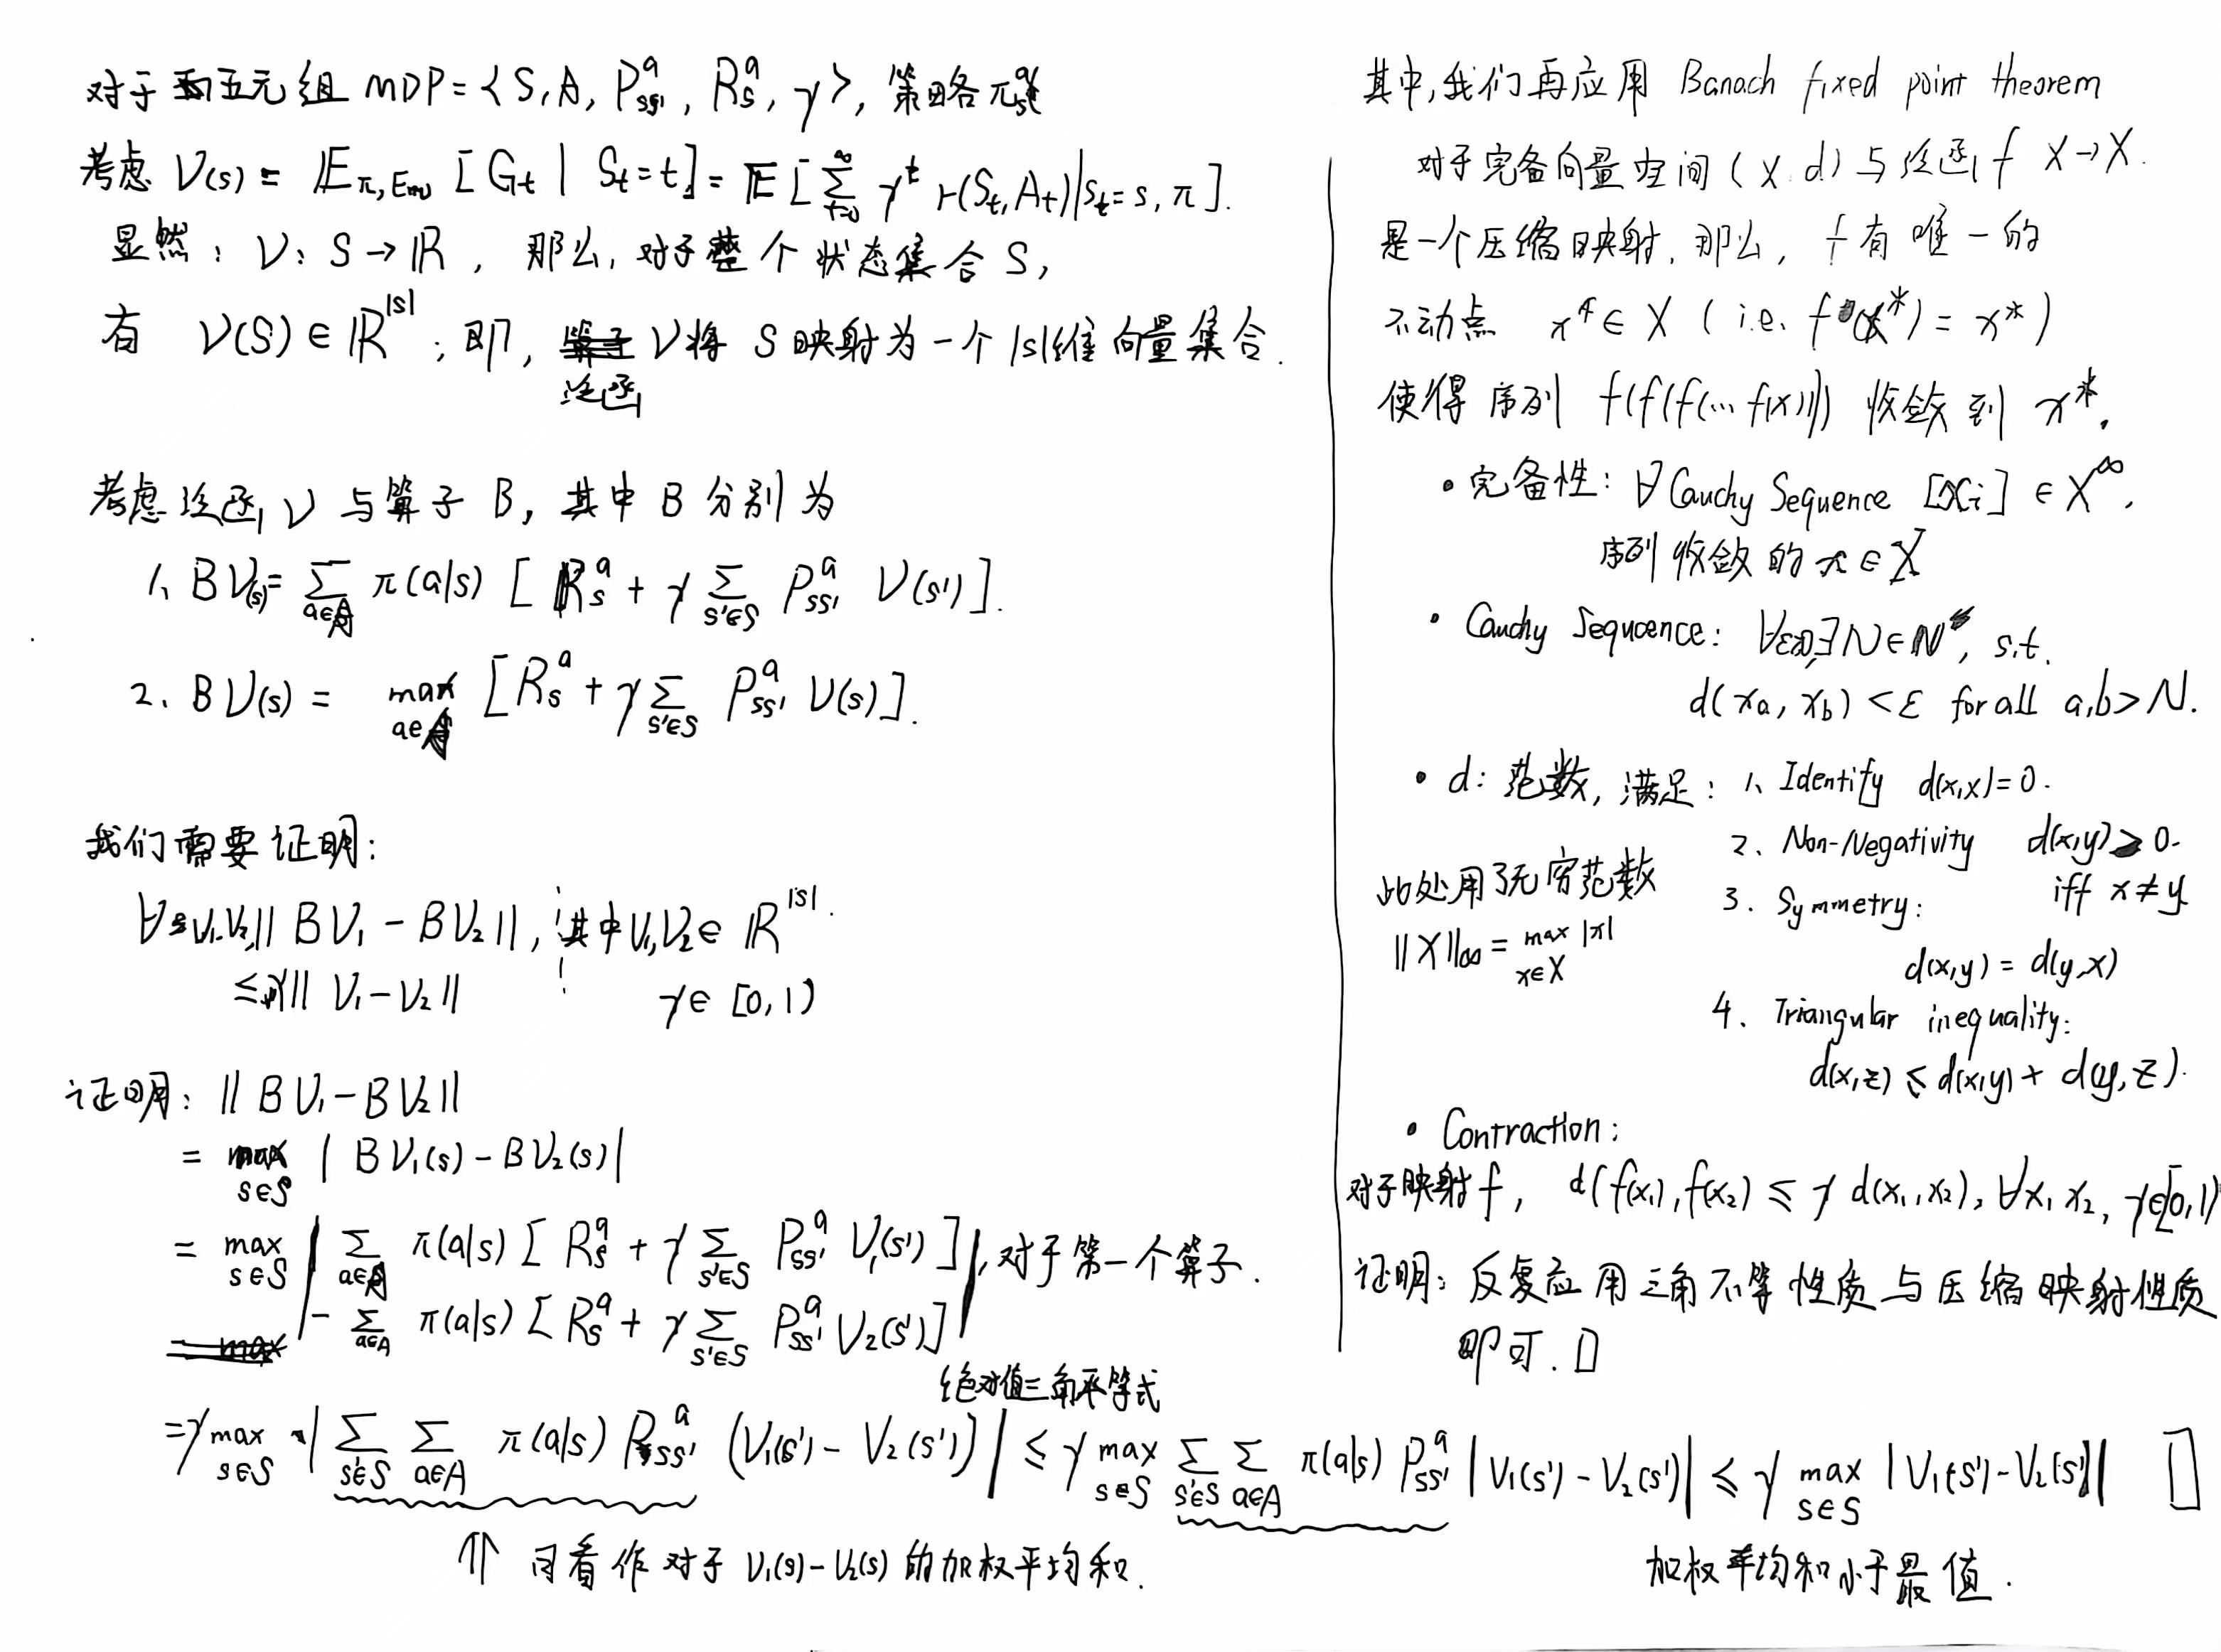 对于五元组 MDP=<S,A, P^a_{ss'}, R^a_s, γ>, 策略π
考虑 V(s) = E_{π,Env} [G_t | S_t=t] = E[∑_{t=0}^∞ γ^t r(S_t,A_t)|S_t=s, π].
显然: V: S→ℝ, 那么, 对于整个状态集合 S,
有 V(S)∈ℝ^{|S|}; 即, 泛函 V将 S映射为一个|S|维向量集合.
考虑泛函V与算子B, 其中B分别为
1、BV(s)= ∑_{a∈A} π(a|s) [R^a_s + γ∑_{s'∈S} P^a_{ss'} V(s')].
2、BV(s) = max_{a∈A} [R^a_s + γ∑_{s'∈S} P^a_{ss'} V(s)].
我们需要证明:
∀V₁,V₂,||BV₁-BV₂||, 其中V₁,V₂∈ℝ^{|S|}.
≤γ||V₁-V₂|| γ∈[0,1)
证明: ||BV₁-BV₂||
= max_{s∈S} |BV₁(s)-BV₂(s)|
= max_{s∈S} | ∑_{a∈A} π(a|s) [R^a_s + γ∑_{s'∈S} P^a_{ss'} V₁(s')]
- ∑_{a∈A} π(a|s) [R^a_s + γ∑_{s'∈S} P^a_{ss'} V₂(s')] |, 对于第一个算子.
绝对值三角不等式
=γ max_{s∈S} |∑_{s'∈S} ∑_{a∈A} π(a|s) P^a_{ss'} (V₁(s')-V₂(s'))| ≤ γ max_{s∈S} ∑_{s'∈S} ∑_{a∈A} π(a|s) P^a_{ss'} |V₁(s')-V₂(s')| ≤ γ max_{s∈S} |V₁(s')-V₂(s')| □
⇑ 可看作对于 V₁(s)-V₂(s) 的加权平均和.
加权平均和小于最值.
其中,我们再应用 Banach fixed point theorem
对于完备向量空间 (X,d) 与泛函f X→X.
是一个压缩映射, 那么, f有唯一的
不动点 x*∈X (i.e. f(x*)=x*)
使得序列 f(f(f(...f(x)))) 收敛到 x*.
• 完备性: ∀Cauchy Sequence [x_i] ∈X^∞,
序列收敛的x∈X
• Cauchy Sequence: ∀ε>0,∃N∈N, s.t.
d(x_a, x_b) <ε for all a,b>N.
• d: 范数, 满足: 1、Identify d(x,x)=0.
2、Non-Negativity d(x,y)>0.
iff x≠y
此处用了无穷范数
||X||_∞ = max_{x∈X} |x|
3. Symmetry:
d(x,y) = d(y,x)
4、Triangular inequality:
d(x,z) ≤ d(x,y) + d(y,z).
• Contraction:
对于映射f, d(f(x₁),f(x₂) ≤ γ d(x₁,x₂), ∀x₁ x₂, γ∈[0,1)
证明: 反复应用三角不等性质与压缩映射性质
即可.□